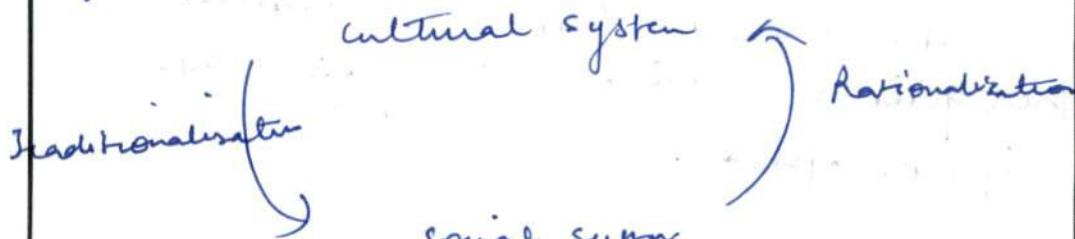 cultural system
Rationalization
Traditionalisation
social system